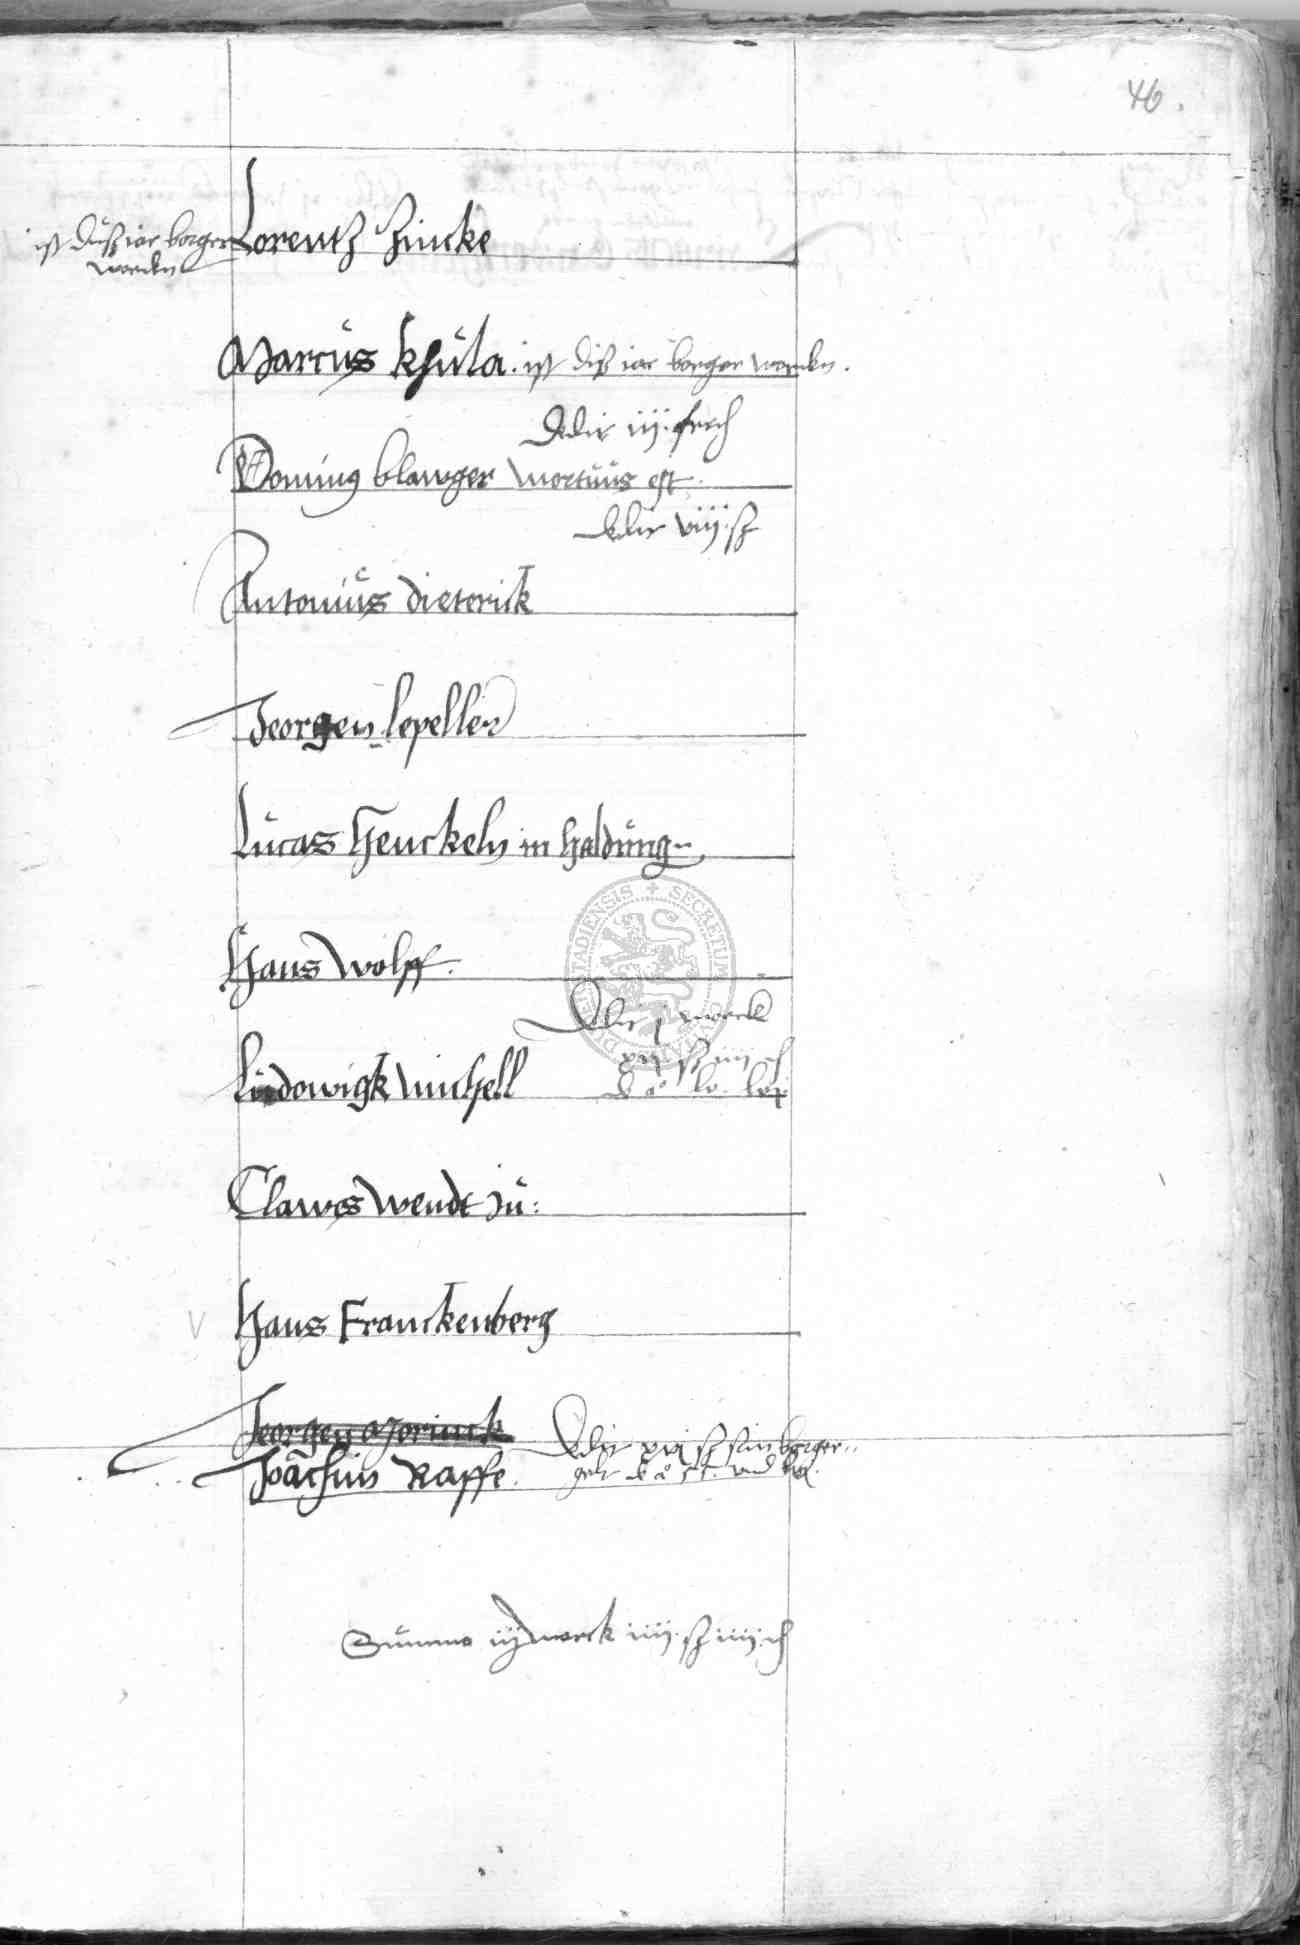 46.
ist duß iar borger
worden
Lorentz Zincke
Marcus Khula. ist diß iar borger worden.
Dedit iij. ſch
Dominus blawger mortuus est.
dedit viij. ß
Antonius dieterick
Jeorgen lepellen
Lucas Henckeln in haldung
Hans Wolff.
Dedit j marck
xij ß iiij
Ludowigk Michell
Clawes Wendt zu:
Hans Franckenberg
Jeorgen Morinck
Dedit xvj ß sein borger
gelt
Joachim Raffe.
Summa iij marck iiij. ß iiij. ₰